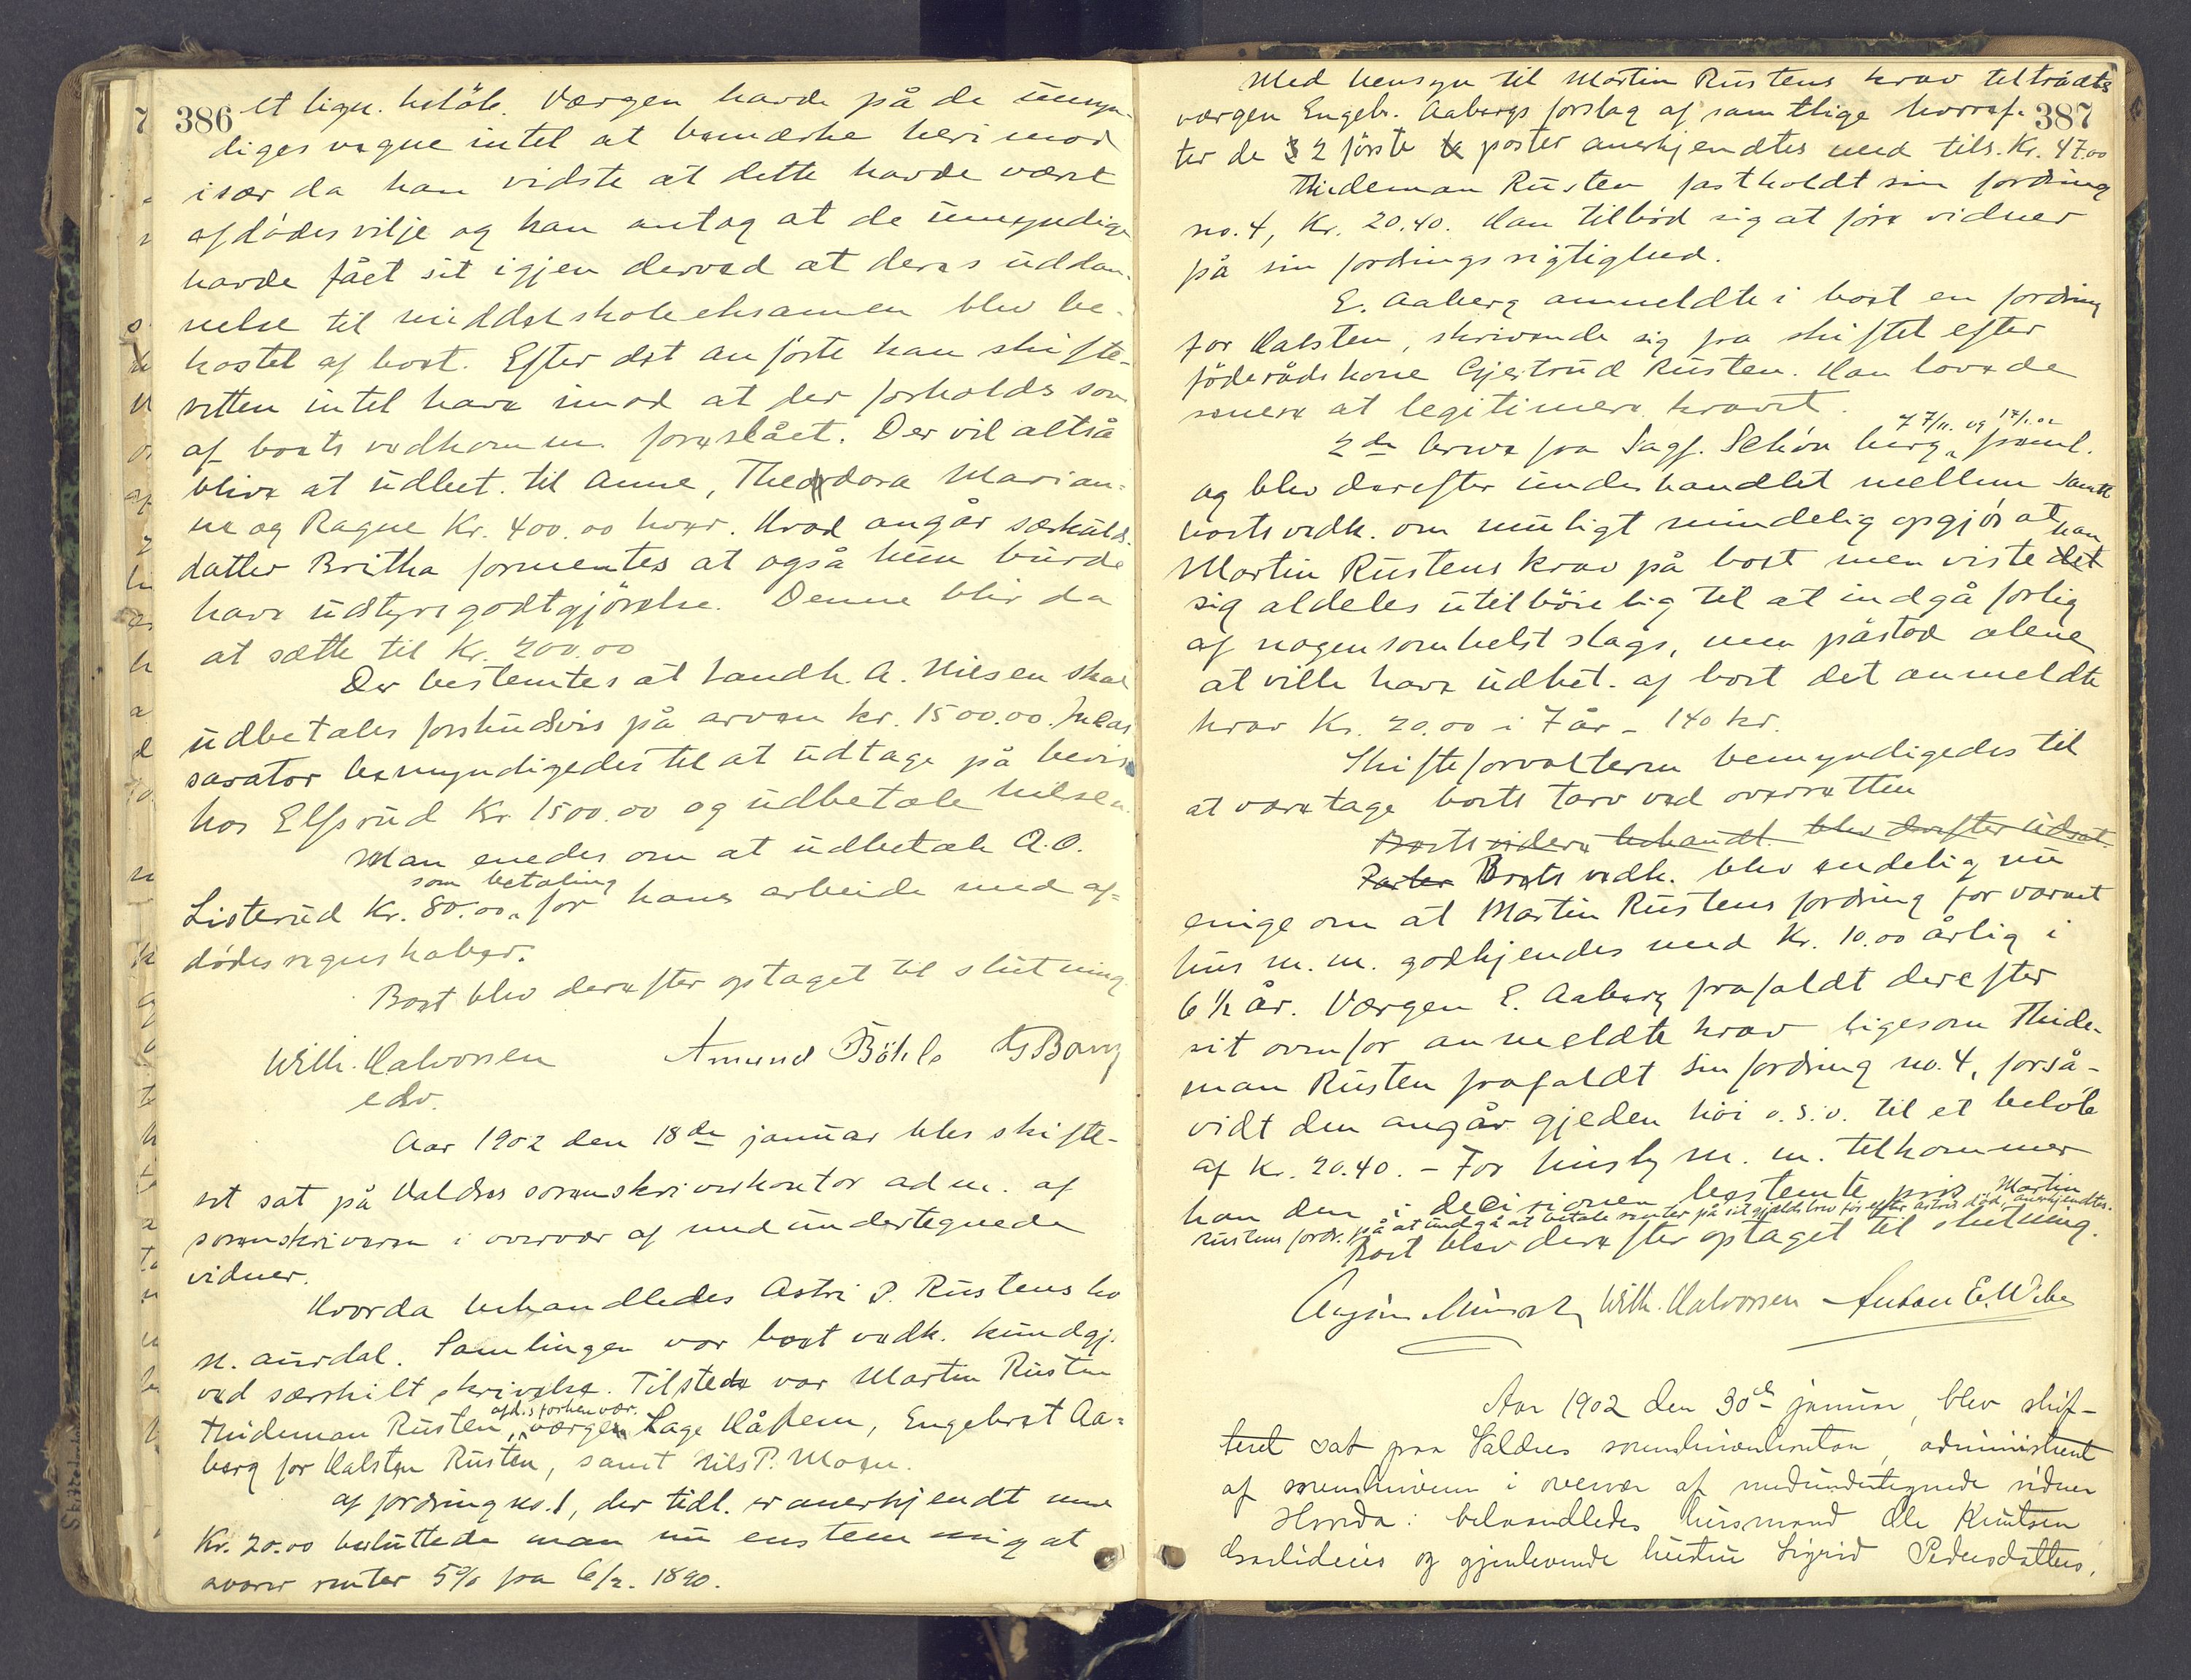 386
et lign. beløb. Værgen havde på de umyn-
diges vegne intet at bemærke herimod
især da han vidste at dette havde været
afdødes vilje og han antog at de umyndige
havde fået sit igjen derved at deres uddan-
nelse til middelskoleeksamen blev be-
kostet af boet. Efter det anførte kan skifte-
retten intet have imod at der forholdes som
af boets vedkomm. foreslået. Der vil altså
blive at udbet. til Anne, Theodora Marian-
ne og Ragne Kr. 400.00 hver. Hvad angår særkulds-
datter Britha formentes at også hun burde
have udstyrsgodtgjørelse. Denne blir da
at sætte til Kr. 200.00
Der bestemtes at landh. A. Nilsen skal
udbetales forskudsvis på arven kr. 1500.00. Incas
sarator bemyndigedes til at udtage på bevis
hos Elfsrud Kr 1500.00 og udbetale Nilsen.
Man enedes om at udbetale A.O.
Listerud Kr. 80.00 som betaling for hans arbeide med af-
dødes regnskaber.
Boet blev derefter optaget til slutning
Wilh. Halvorsen Amund Bøhle G Berg
edsv.
Aar 1902 den 18de januar blev skifte-
ret sat på Valdres sorenskriverkontor adm. af
sorenskriveren i overvær af medundertegnede
vidner.
Hvorda behandledes Astri P. Rustens bo
N. Aurdal. Samlingen var boet vedk. kundgj.
ved særskilt skrivelse. Tilstede var Martin Rusten
Thideman Rusten, afd.s forhenvær. værge Lage Håfem, Engebret Aa-
berg for Halsten Rusten, samt Nils P. Moen.
Af fordring no. 1, der tidl. er anerkjendt med
Kr. 20.00 besluttede man nu enstemmig at
svarer renter 5% fra 6/2. 1890.
387
Med hensyn til Martin Rustens krav tiltrådtes
værgen Engebr. Aabergs forslag af samtlige hvoref-
ter de 2 første poster anerkjendtes med tils. Kr. 47.00
Thideman Rusten fastholdt sin fordring
no. 4, Kr. 20.40. Han tilbød sig at føre vidner
på sin fordrings rigtighed.
E. Aaberg anmeldte i boet en fordring
for Halsten, skrivende sig fra skiftet efter
føderådskone Gjertrud Rusten. Han lovede
senere at legitimere kravet.
2de breve fra Sagf. Schønberg 27/11. og 17/1.02 freml.
og blev derefter underhandlet mellem samtl
boets vedk. om muligt mindelig opgjør at
Martin Rustens krav på boet men viste han det
sig aldeles utilbøielig til at indgå forlig
af nogensomhelst slags, men påstod alene
at ville have udbet. af boet det anmeldte
krav Kr. 20.00 i 7 år - 140 kr.
Skifteforvalteren bemyndigedes til
at varetage boets tarv ved overretten
Boets videre behandl. blev derefter udsat.
Parter Boets vedk. blev endelig nu
enige om at Martin Rustens fordring for været
hus m.m. godkjendes med Kr. 10.00 årlig i
6 1/2 år. Værgen E. Aaberg frafaldt derefter
sit ovenfor anmeldte krav ligesom Thide-
man Rusten frafaldt sin fordring no. 4, forså-
vidt den angår gjeden høi o.s.v. til et beløb
af Kr. 20.40. – For husly m. m. tilkommer
han den i decisionen bestemte pris Martin
Rustens fordr. på at undgå at betale renter på sit gjældsbrev før efter Astris død, anerkjendtes.
Boet blev derefter optaget til slutning.
Wilh. Halvorsen Anton E. Wibe
Aar 1902 den 30te januar, blev skif-
teret sat paa Valdres sorenskriverkontor, administreret
af sorenskriveren i overvær af medundertegnede vidner
Hvorda: behandledes husmand Ole Knutsen
og gjenlevende hustru Sigrid Pedersdatters,